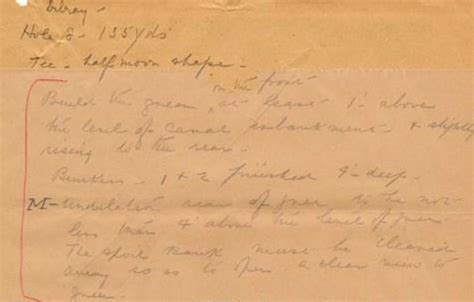 Delray -
Hole 8 - 135 yds
Tee - half moon shape -
on the front
Build the green, at least 1' above
the level of canal embankment - & slightly
rising to the rear.
Bunkers - 1 & 2 finished 4' deep.
M - Undulated rear of green to be not
less than 4' above the level of green
The spoil bank must be cleared
away so as to open a clear view to
green -